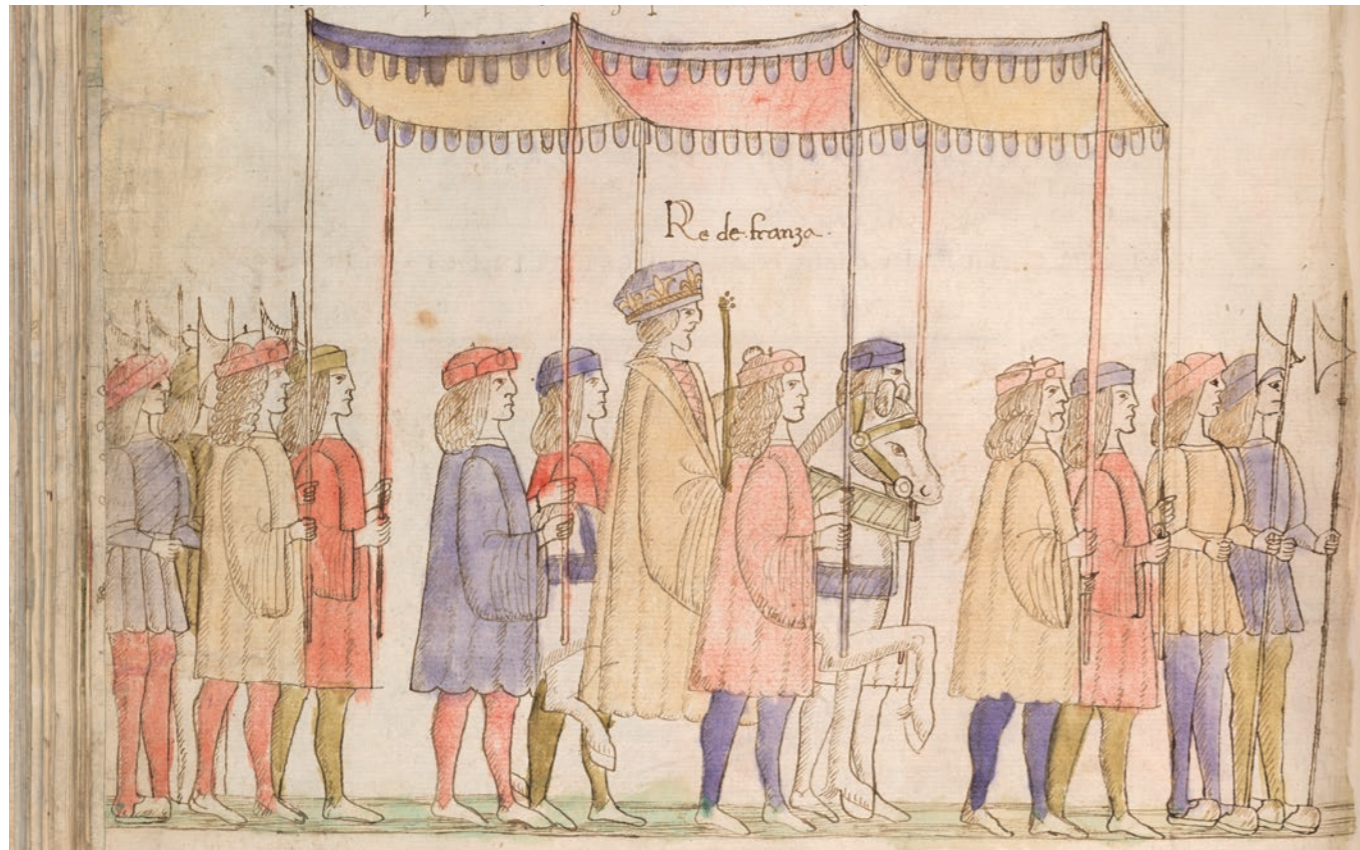 Re de franza